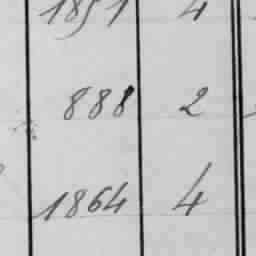 1851 4
888 2
1864 4